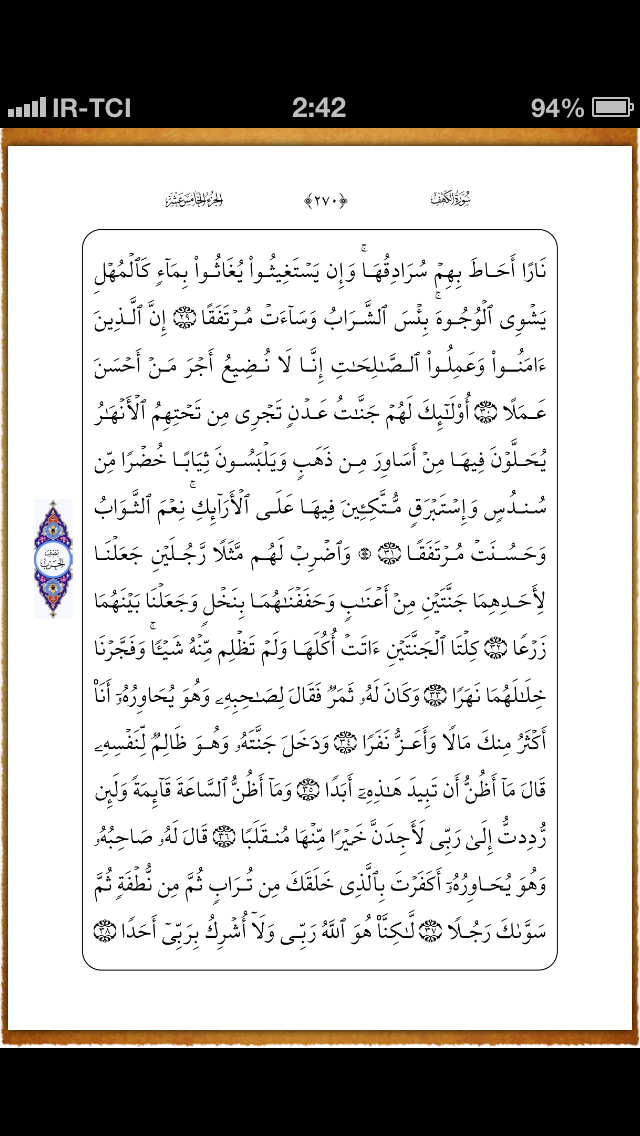 IR-TCI 2:42 94%
سُورَةُ الكَهْفِ ﴿٢٧٠﴾ الجُزْءُ الخَامِسَ عَشَرَ
نَارًا أَحَاطَ بِهِمۡ سُرَادِقُهَاۚ وَإِن يَسۡتَغِيثُواْ يُغَاثُواْ بِمَآءٖ كَٱلۡمُهۡلِ
يَشۡوِي ٱلۡوُجُوهَۚ بِئۡسَ ٱلشَّرَابُ وَسَآءَتۡ مُرۡتَفَقًا ٢٩ إِنَّ ٱلَّذِينَ
ءَامَنُواْ وَعَمِلُواْ ٱلصَّٰلِحَٰتِ إِنَّا لَا نُضِيعُ أَجۡرَ مَنۡ أَحۡسَنَ
عَمَلًا ٣٠ أُوْلَٰٓئِكَ لَهُمۡ جَنَّٰتُ عَدۡنٖ تَجۡرِي مِن تَحۡتِهِمُ ٱلۡأَنۡهَٰرُ
يُحَلَّوۡنَ فِيهَا مِنۡ أَسَاوِرَ مِن ذَهَبٖ وَيَلۡبَسُونَ ثِيَابًا خُضۡرٗا مِّن
سُندُسٖ وَإِسۡتَبۡرَقٖ مُّتَّكِـِٔينَ فِيهَا عَلَى ٱلۡأَرَآئِكِۚ نِعۡمَ ٱلثَّوَابُ
وَحَسُنَتۡ مُرۡتَفَقٗا ٣١ ۞ وَٱضۡرِبۡ لَهُم مَّثَلٗا رَّجُلَيۡنِ جَعَلۡنَا
لِأَحَدِهِمَا جَنَّتَيۡنِ مِنۡ أَعۡنَٰبٖ وَحَفَفۡنَٰهُمَا بِنَخۡلٖ وَجَعَلۡنَا بَيۡنَهُمَا
زَرۡعٗا ٣٢ كِلۡتَا ٱلۡجَنَّتَيۡنِ ءَاتَتۡ أُكُلَهَا وَلَمۡ تَظۡلِم مِّنۡهُ شَيۡـٔٗاۚ وَفَجَّرۡنَا
خِلَٰلَهُمَا نَهَرٗا ٣٣ وَكَانَ لَهُۥ ثَمَرٞ فَقَالَ لِصَٰحِبِهِۦ وَهُوَ يُحَاوِرُهُۥٓ أَنَا۠
أَكۡثَرُ مِنكَ مَالٗا وَأَعَزُّ نَفَرٗا ٣٤ وَدَخَلَ جَنَّتَهُۥ وَهُوَ ظَالِمٞ لِّنَفۡسِهِۦ
قَالَ مَآ أَظُنُّ أَن تَبِيدَ هَٰذِهِۦٓ أَبَدٗا ٣٥ وَمَآ أَظُنُّ ٱلسَّاعَةَ قَآئِمَةٗ وَلَئِن
رُّدِدتُّ إِلَىٰ رَبِّي لَأَجِدَنَّ خَيۡرٗا مِّنۡهَا مُنقَلَبٗا ٣٦ قَالَ لَهُۥ صَاحِبُهُۥ
وَهُوَ يُحَاوِرُهُۥٓ أَكَفَرۡتَ بِٱلَّذِي خَلَقَكَ مِن تُرَابٖ ثُمَّ مِن نُّطۡفَةٖ ثُمَّ
سَوَّىٰكَ رَجُلٗا ٣٧ لَّٰكِنَّا۠ هُوَ ٱللَّهُ رَبِّي وَلَآ أُشۡرِكُ بِرَبِّيٓ أَحَدٗا ٣٨
نِصْفُ
الحِزْبِ